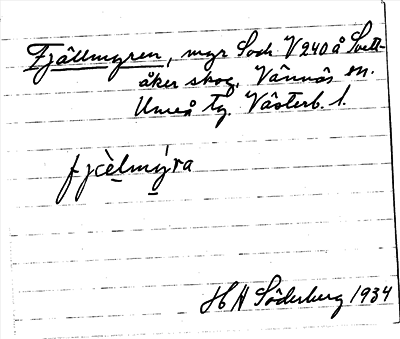 Fjällmyren, myr Soch V 240 å Svett-
åker skog, Vännäs sn.
Umeå tg. Västerb. l.
fjɛ̀lmýra
H H Söderberg 1934